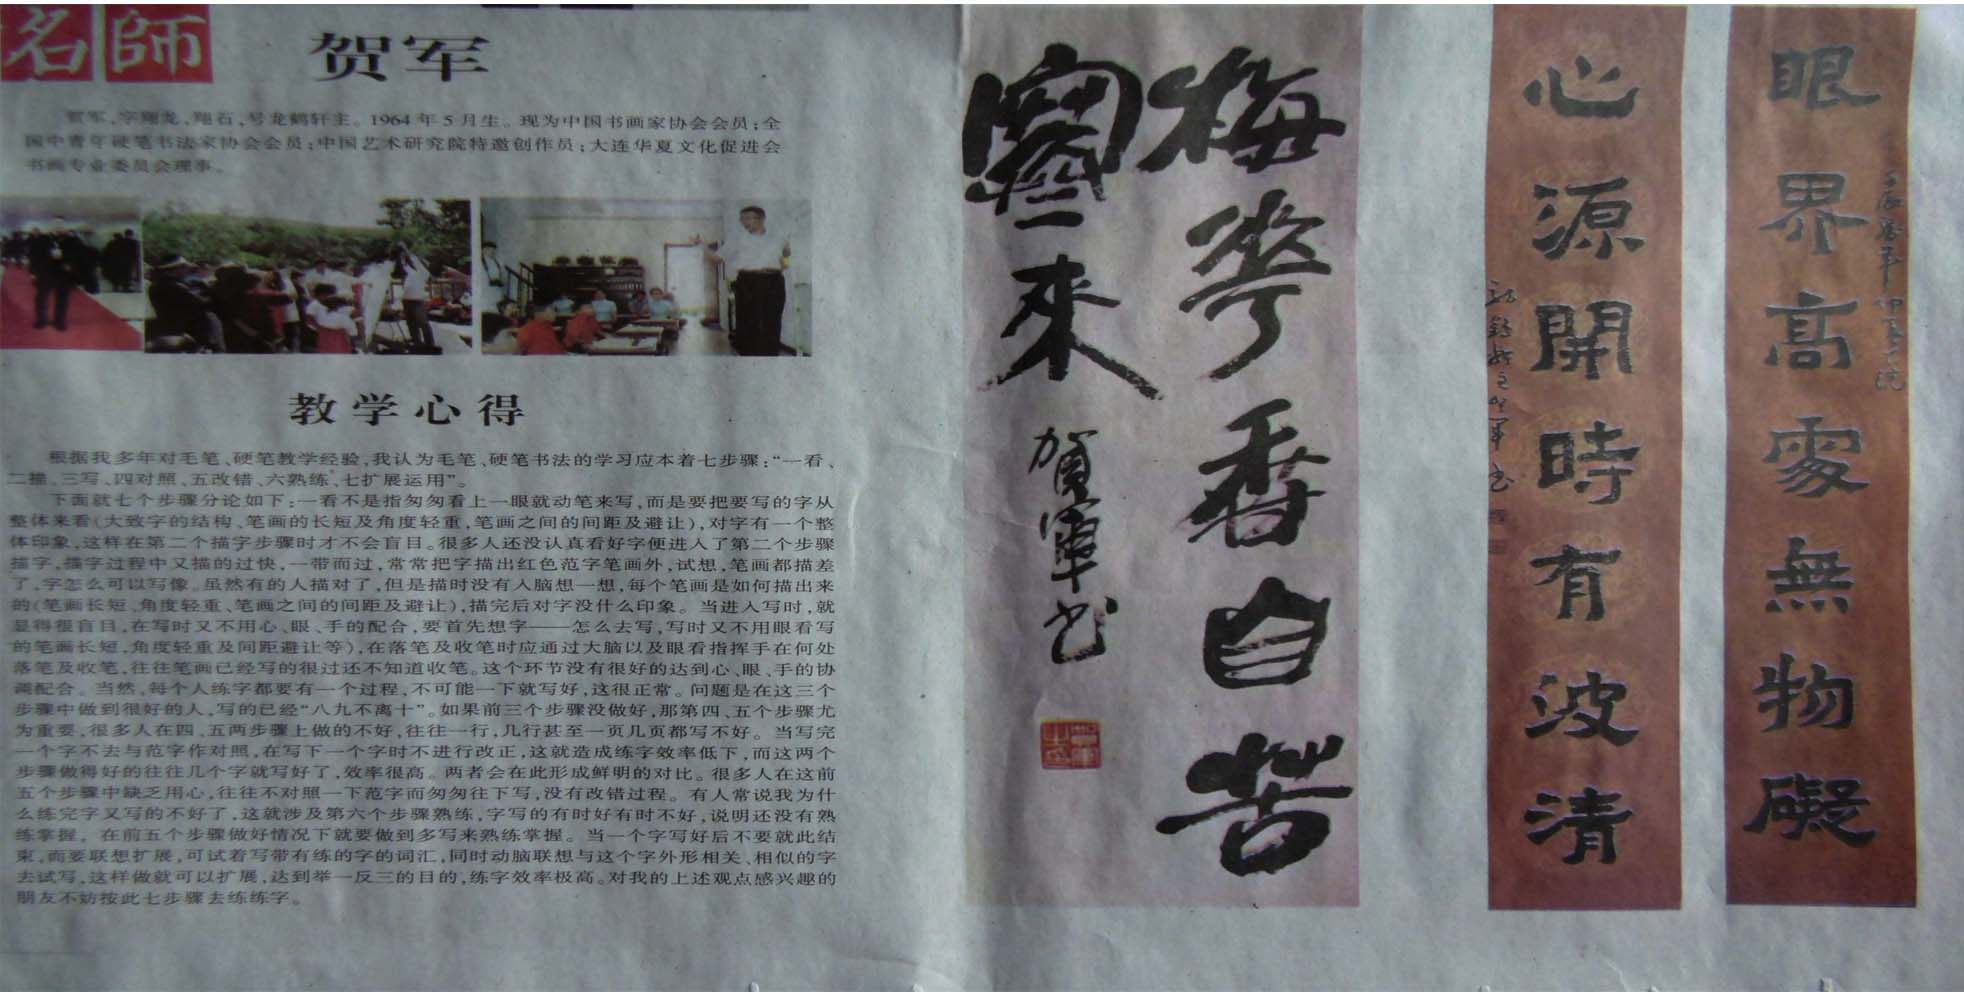 名師
贺军
贺军,字翔龙、翔石,号龙鹤轩主。1964年5月生。现为中国书画家协会会员;全
国中青年硬笔书法家协会会员;中国艺术研究院特邀创作员;大连华夏文化促进会
书画专业委员会理事。
教学心得
根据我多年对毛笔、硬笔教学经验,我认为毛笔、硬笔书法的学习应本着七步骤:“一看、
二描、三写、四对照、五改错、六熟练、七扩展运用”。
下面就七个步骤分论如下:一看不是指匆匆看上一眼就动笔来写,而是要把要写的字从
整体来看(大致字的结构、笔画的长短及角度轻重,笔画之间的间距及避让),对字有一个整
体印象,这样在第二个描字步骤时才不会盲目。很多人还没认真看好字便进入了第二个步骤
描字,描字过程中又描的过快,一带而过,常常把字描出红色范字笔画外,试想,笔画都描差
了,字怎么可以写像。虽然有的人描对了,但是描时没有入脑想一想,每个笔画是如何描出来
的(笔画长短、角度轻重、笔画之间的间距及避让),描完后对字没什么印象。当进入写时,就
显得很盲目,在写时又不用心、眼、手的配合,要首先想字——怎么去写,写时又不用眼看写
的笔画长短,角度轻重及间距避让等),在落笔及收笔时应通过大脑以及眼看指挥手在何处
落笔及收笔,往往笔画已经写的很过还不知道收笔。这个环节没有很好的达到心、眼、手的协
调配合。当然,每个人练字都要有一个过程,不可能一下就写好,这很正常。问题是在这三个
步骤中做到很好的人,写的已经“八九不离十”。如果前三个步骤没做好,那第四、五个步骤尤
为重要,很多人在四、五两步骤上做的不好,往往一行,几行甚至一页几页都写不好。当写完
一个字不去与范字作对照,在写下一个字时不进行改正,这就造成练字效率低下,而这两个
步骤做得好的往往几个字就写好了,效率很高。两者会在此形成鲜明的对比。很多人在这前
五个步骤中缺乏用心,往往不对照一下范字而匆匆往下写,没有改错过程。有人常说我为什
么练完字又写的不好了,这就涉及第六个步骤熟练,字写的有时好有时不好,说明还没有熟
练掌握。在前五个步骤做好情况下就要做到多写来熟练掌握。当一个字写好后不要就此结
束,而要联想扩展,可试着写带有练的字的词汇,同时动脑联想与这个字外形相关、相似的字
去试写,这样做就可以扩展,达到举一反三的目的,练字效率极高。对我的上述观点感兴趣的
朋友不妨按此七步骤去练练字。
梅花香自苦
寒来
贺軍书
眼界高處無物礙
心源開時有波清
龍鶴軒主賀軍书